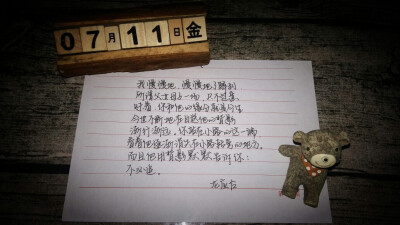 07月11日金
我慢慢地、慢慢地了解到
所谓父女母子一场，只不过意
味着，你和他的缘分就是今生
今世不断地在目送他的背影
渐行渐远。你站在小路的这一端
看着他逐渐消失在小路转弯的地方，
而且他用背影默默告诉你：
不必追。
龙应台